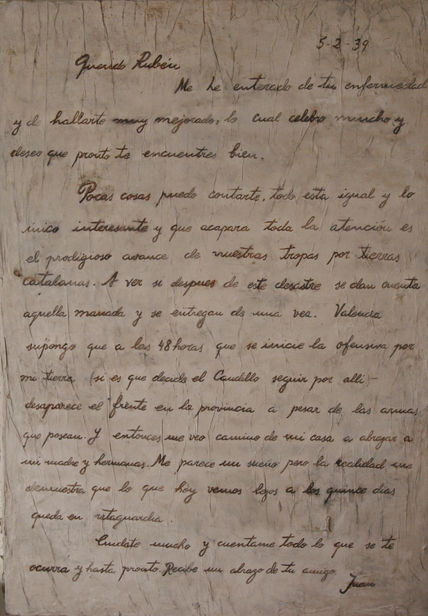 5-2-39
Querido Rubén
Me he enterado de tu enfermedad
y de hallarte muy mejorado, lo cual celebro mucho y
deseo que pronto te encuentres bien.
Pocas cosas puedo contarte, todo esta igual y lo
único interesante y que acapara toda la atención es
el prodigioso avance de nuestras tropas por tierras
catalanas. A ver si despues de este desastre se dan cuenta
aquella manada y se entregan de una vez. Valencia
supongo que a las 48 horas que se inicie la ofensiva por
mi tierra (si es que decide el Caudillo seguir por alli-
desaparece el frente en la provincia a pesar de las armas
que posean. Y entonces me veo camino de mi casa a abrazar a
mi madre y hermanas. Me parece un sueño pero la realidad me
demuestra que lo que hoy vemos lejos a los quince dias
queda en retaguardia.
Cuidate mucho y cuentame todo lo que se te
ocurra y hasta pronto. Recibe un abrazo de tu amigo
Juan